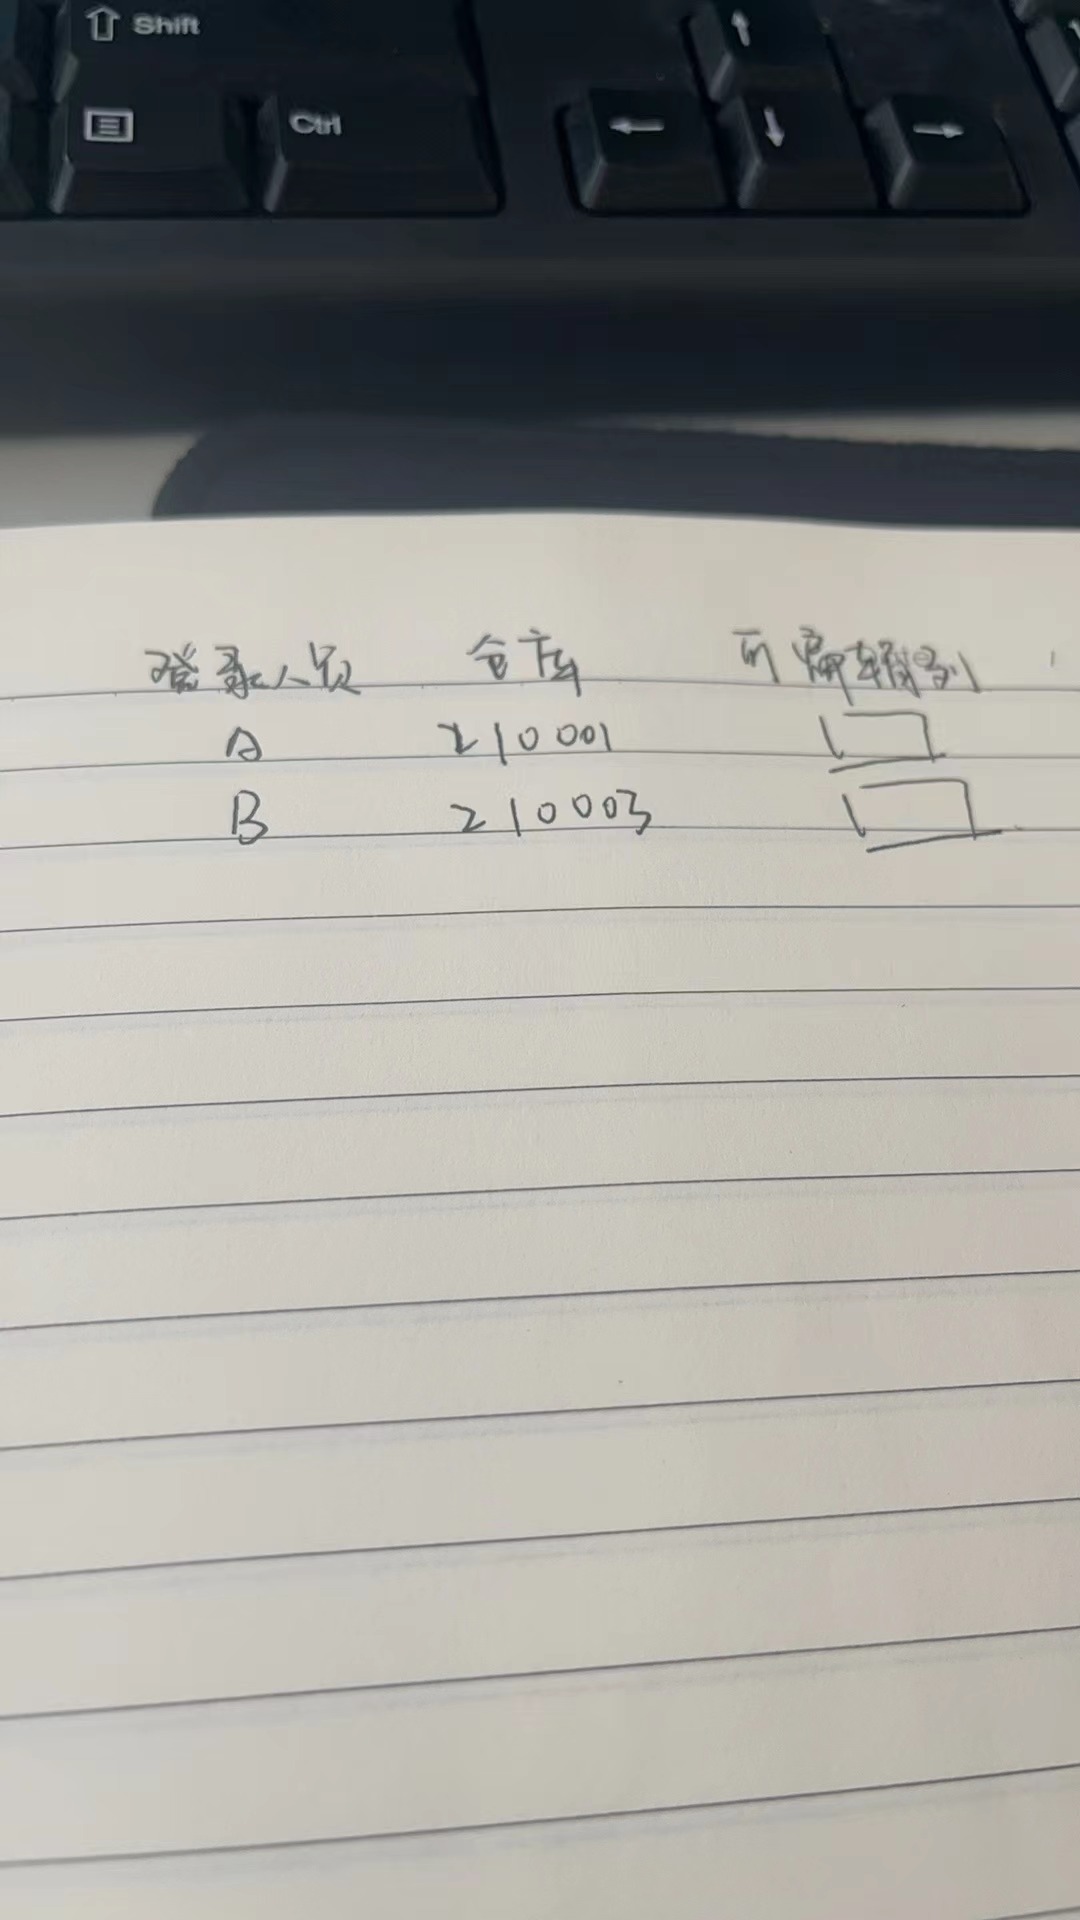 Shift
Ctrl
登录人员 仓库 可编辑
A 210001
B 210003